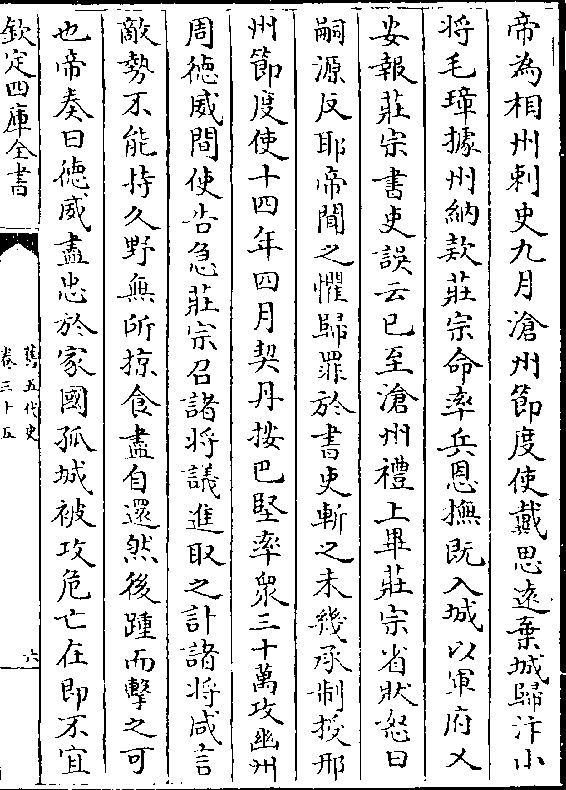 帝為相州刺史九月滄州節度使戴思遠棄城歸汴小
将毛璋據州納款莊宗命率兵恩撫既入城以軍府乂
安報莊宗書吏誤云已至滄州禮上畢莊宗省狀怒曰
嗣源反耶帝聞之懼歸罪於書吏斬之未幾承制授邢
州節度使十四年四月契丹按巴堅率衆三十萬攻幽州
周徳威間使告急莊宗召諸将議進取之計諸将咸言
敵勢不能持久野無所掠食盡自還然後踵而擊之可
也帝奏曰徳威盡忠於家國孤城被攻危亡在即不宜
欽定四庫全書
舊五代史
卷三十五
六